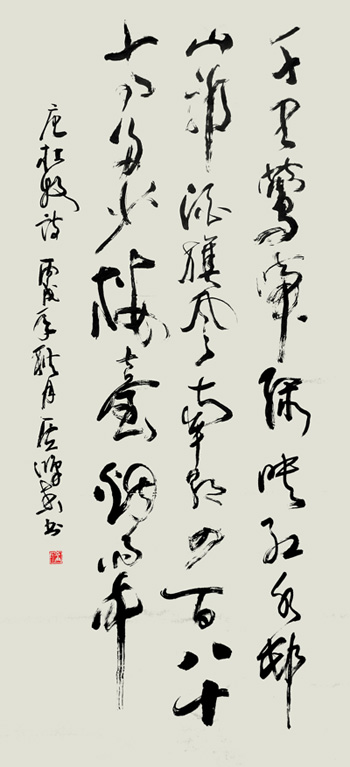 千里鶯啼綠映紅水邨
山郭酒旗風南朝四百八十
寺多少樓臺煙雨中
唐杜牧诗 丙戌年秋月 书